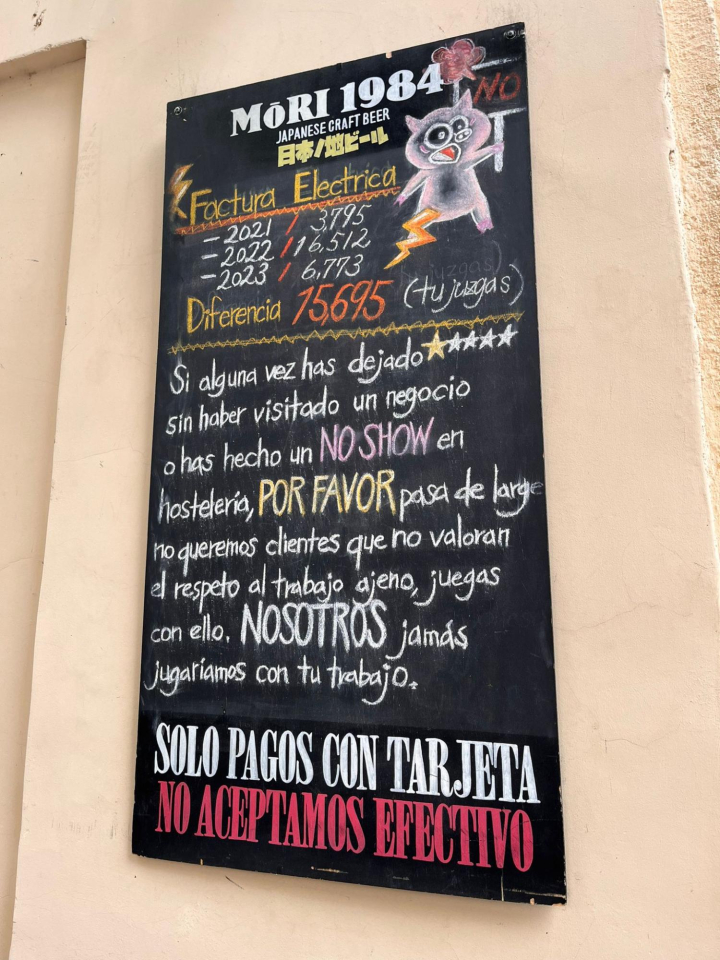 MōRI 1984
JAPANESE CRAFT BEER
日本ノ地ビール
NO
Factura Electrica
- 2021 / 3,795
- 2022 / 16,512
- 2023 / 6,773
Diferencia 15695 (tu juzgas)
Si alguna vez has dejado ★★★★★
sin haber visitado un negocio
o has hecho un NO SHOW en
hostelería, POR FAVOR pasa de large
no queremos clientes que no valoran
el respeto al trabajo ajeno, juegas
con ello. NOSOTROS jamás
jugaríamos con tu trabajo.
SOLO PAGOS CON TARJETA
NO ACEPTAMOS EFECTIVO